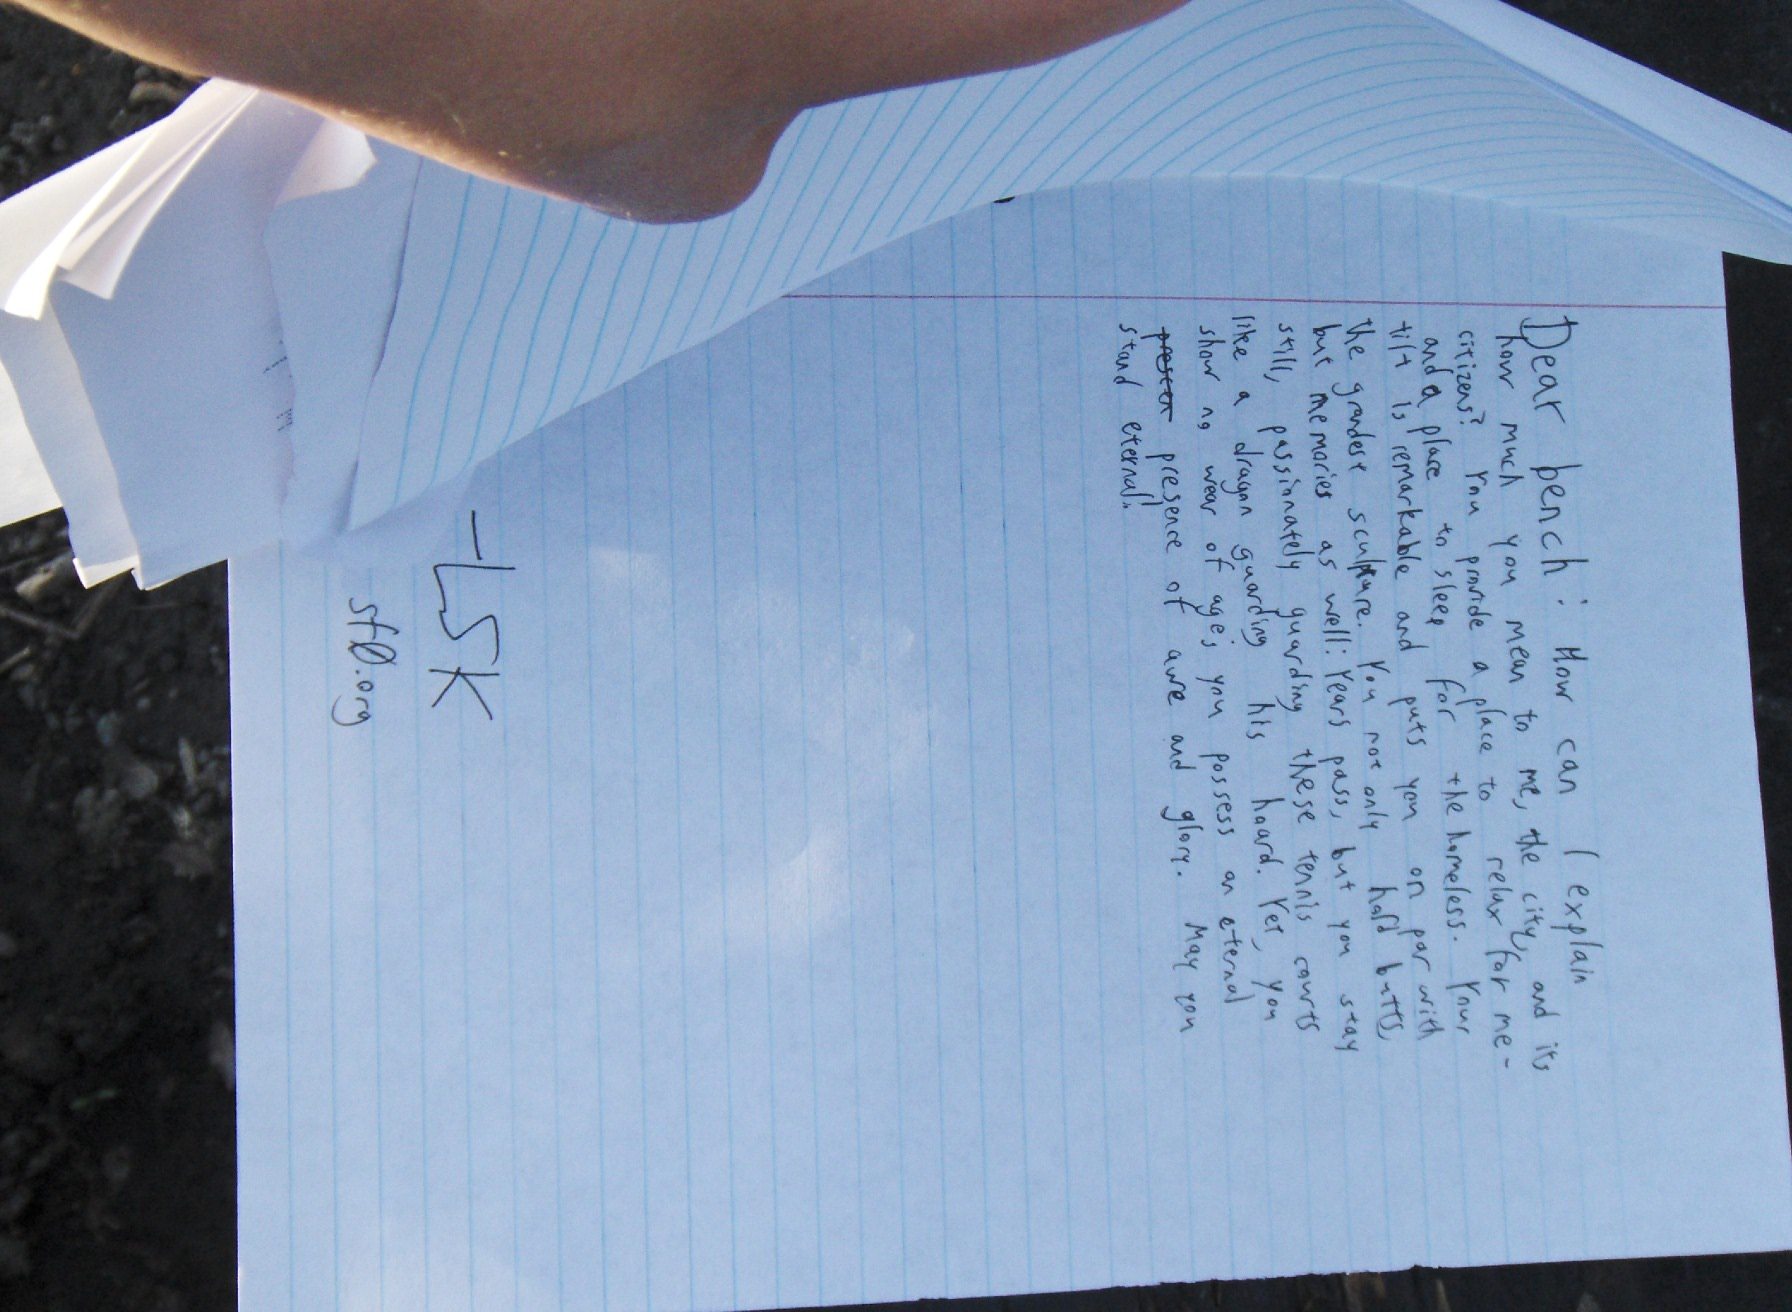 Dear bench: How can I explain
how much you mean to me, the city, and its
citizens? You provide a place to relax for me-
and a place to sleep for the homeless. Your
tilt is remarkable and puts you on par with
the grandest sculpture. You not only hold butts,
but memories as well: Years pass, but you stay
still, passionately guarding these tennis courts
like a dragon guarding his hoard. Yet, you
show no wear of age; you possess an eternal
presen presence of awe and glory. May you
stand eternal.
-LSK
sf0.org